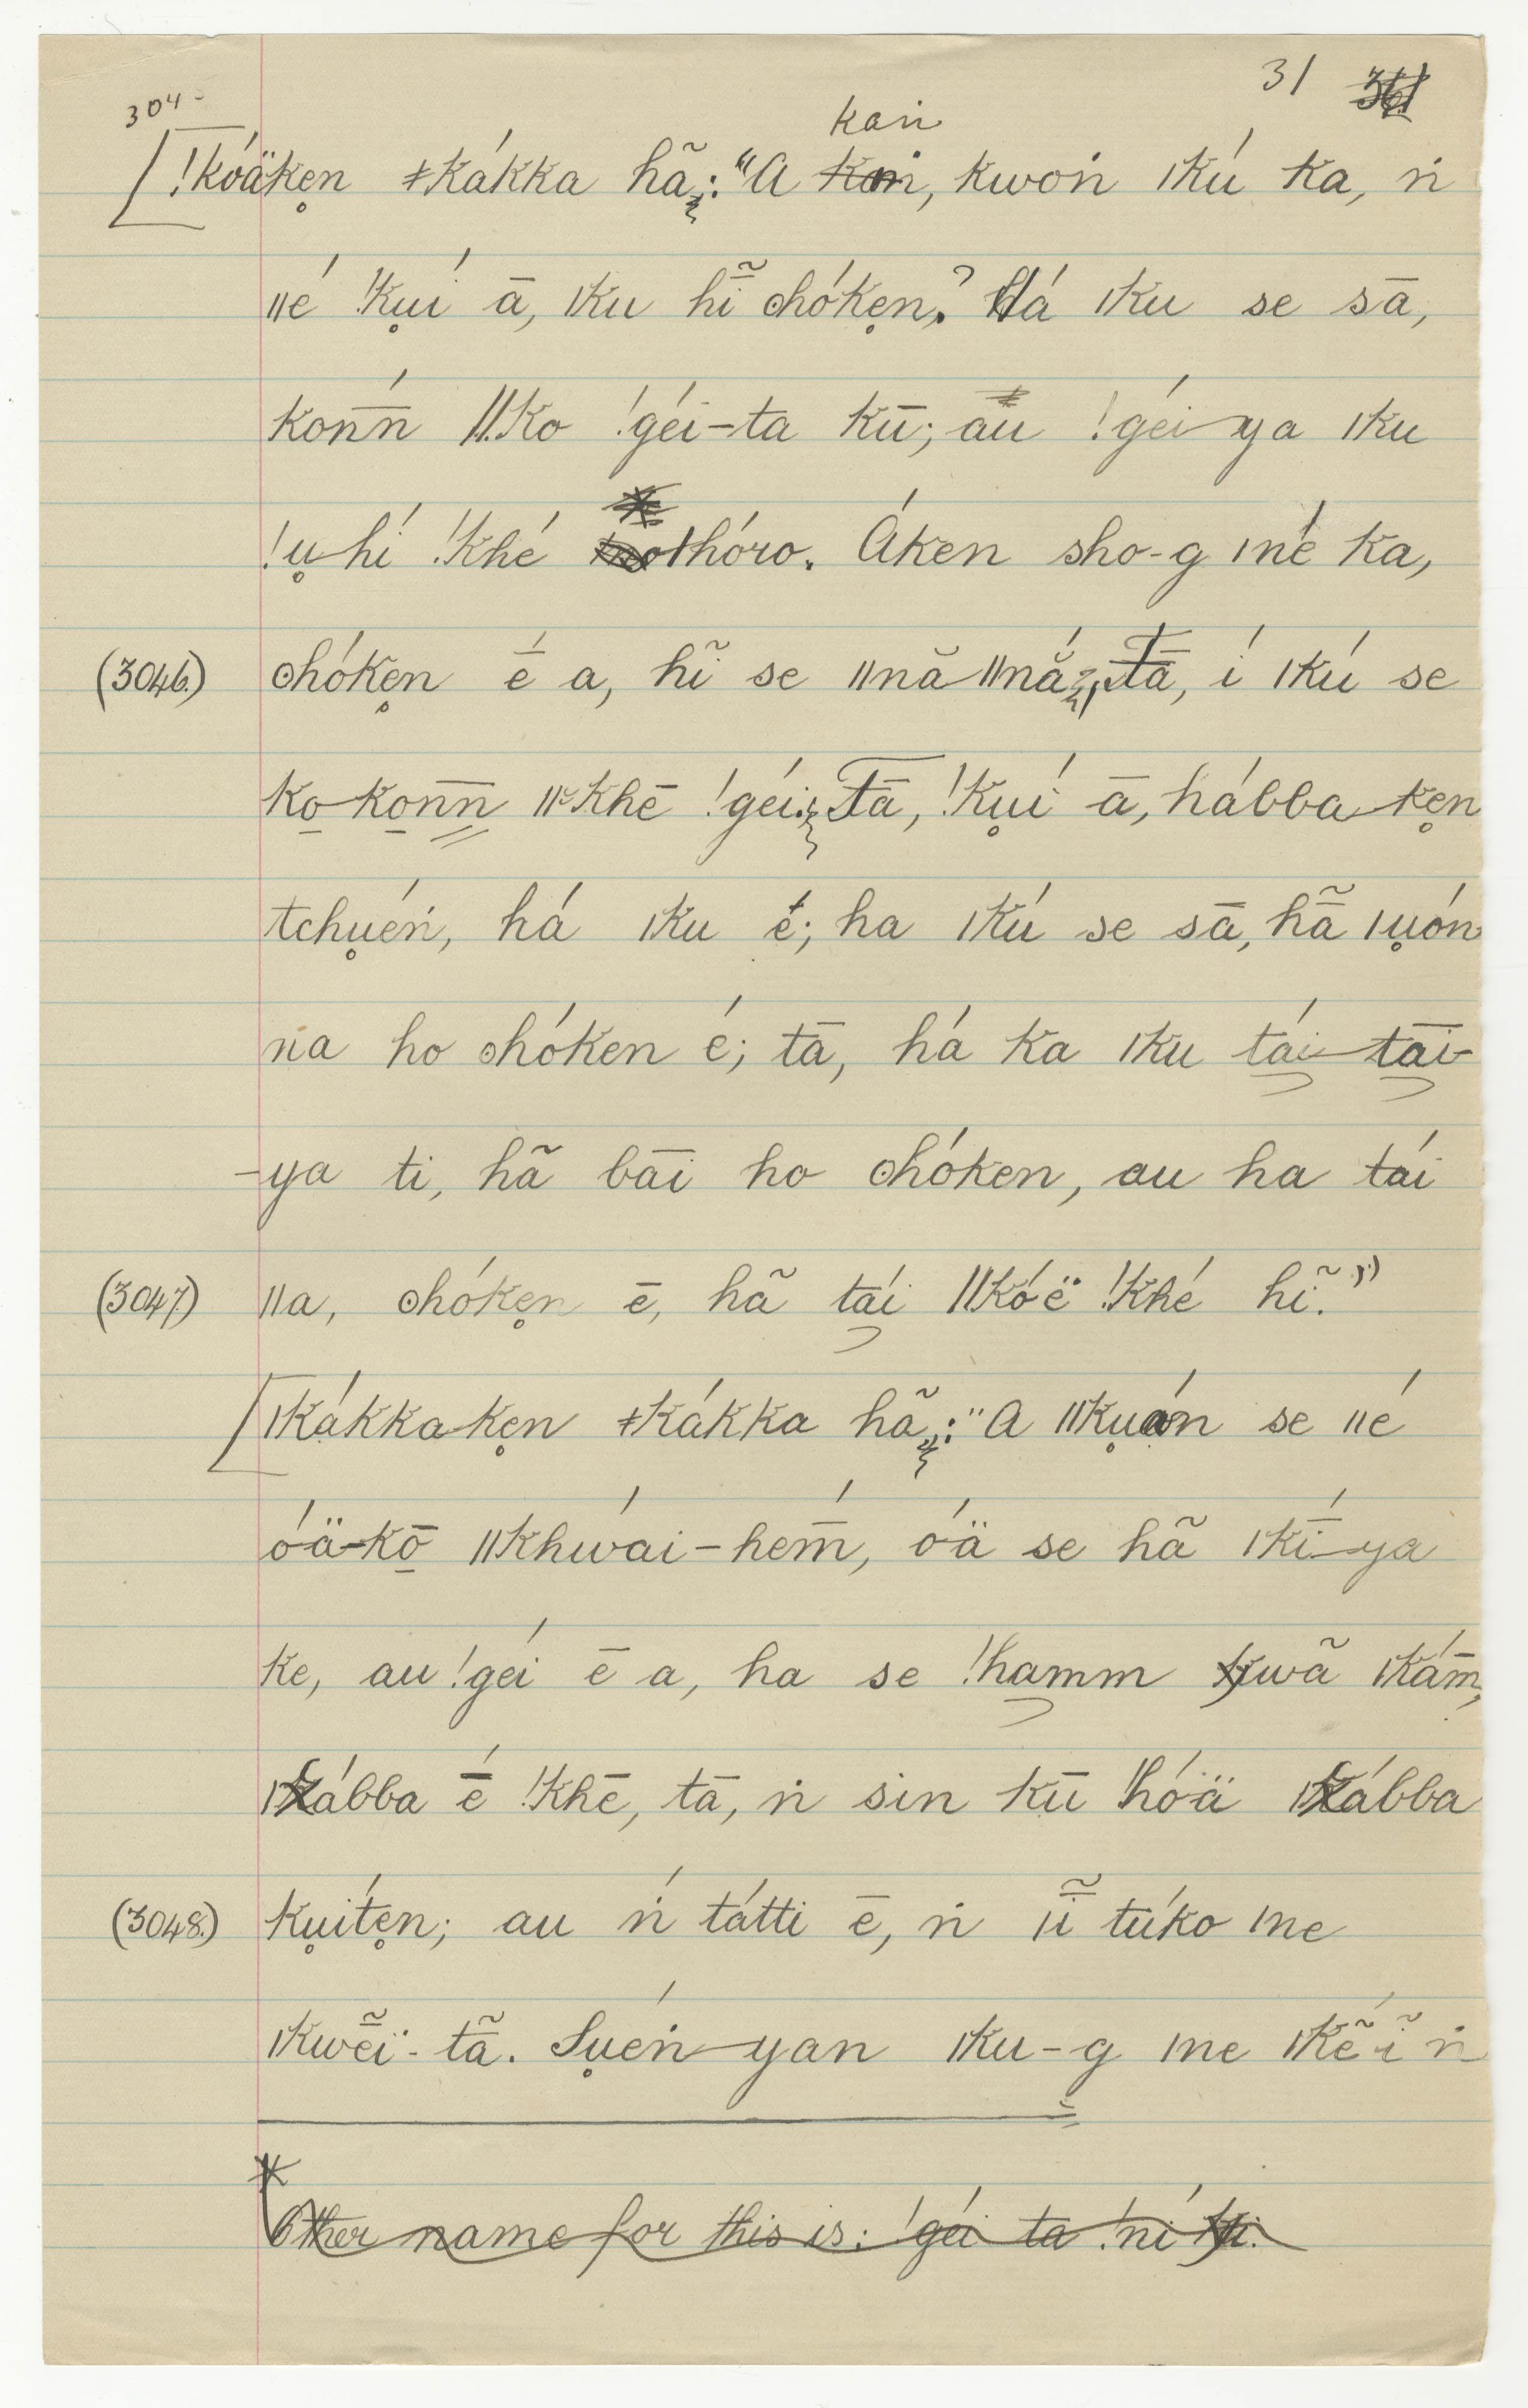 304-
31 ~~361~~
kaṅ
[!kóäkẹn ǂkákka hã: "A ~~kaṅ~~, kwoṅ ǀkú ka, ṅ
ǁé !kụí ā, ǀku hĩ ʘhókẹn? Há ǀku se sā,
konn̄ ǁko !géi-ta kū; au !géi-ya ǀku
!ụ-hí !khé ǀhóro. Áken sho-g ǀné ka,
(3046.) ʘhókẹn é̄ a, hĩ se ǁnă-ǁnắ, Tā, í ǀkú se
k̠o-k̠onn̄ ǁkhē !géi. Tā, !kụí ā, hábba-kẹn
tchụéṅ, há ǀku é; ha ǀkú se sā, hã ǀụón
na ho ʘhóken é; tā, há ka ǀku tái-tāī-
-ya ti, hã bāī ho ʘhóken, au ha tái
(3047.) ǁa, ʘhókẹn ē, hã tái ǁkóë !khé hĩ."
[ǀkákka-kẹn ǂkákka hã: "A ǁkụán se ǁé
óä-k̠ō ǁkhwái-hem̄, óä se hã ǀkī́-ya
ke, au !géi ē a, ha se !hamm ǀwã ǀkám̄,
ǀkábba é̄ !khē, tā, ṅ sin kū !hóä ǀkábba
(3048.) kụítẹn; au ṅ tátti ē, ṅ ǀĩ túko ǀne
ǀkwẽï-tã. Sụéṅ-yan ǀku-g ǀne ǀkẽ́-ĩ ṅ
~~Other name for this is: !géi ta !ní tti.~~